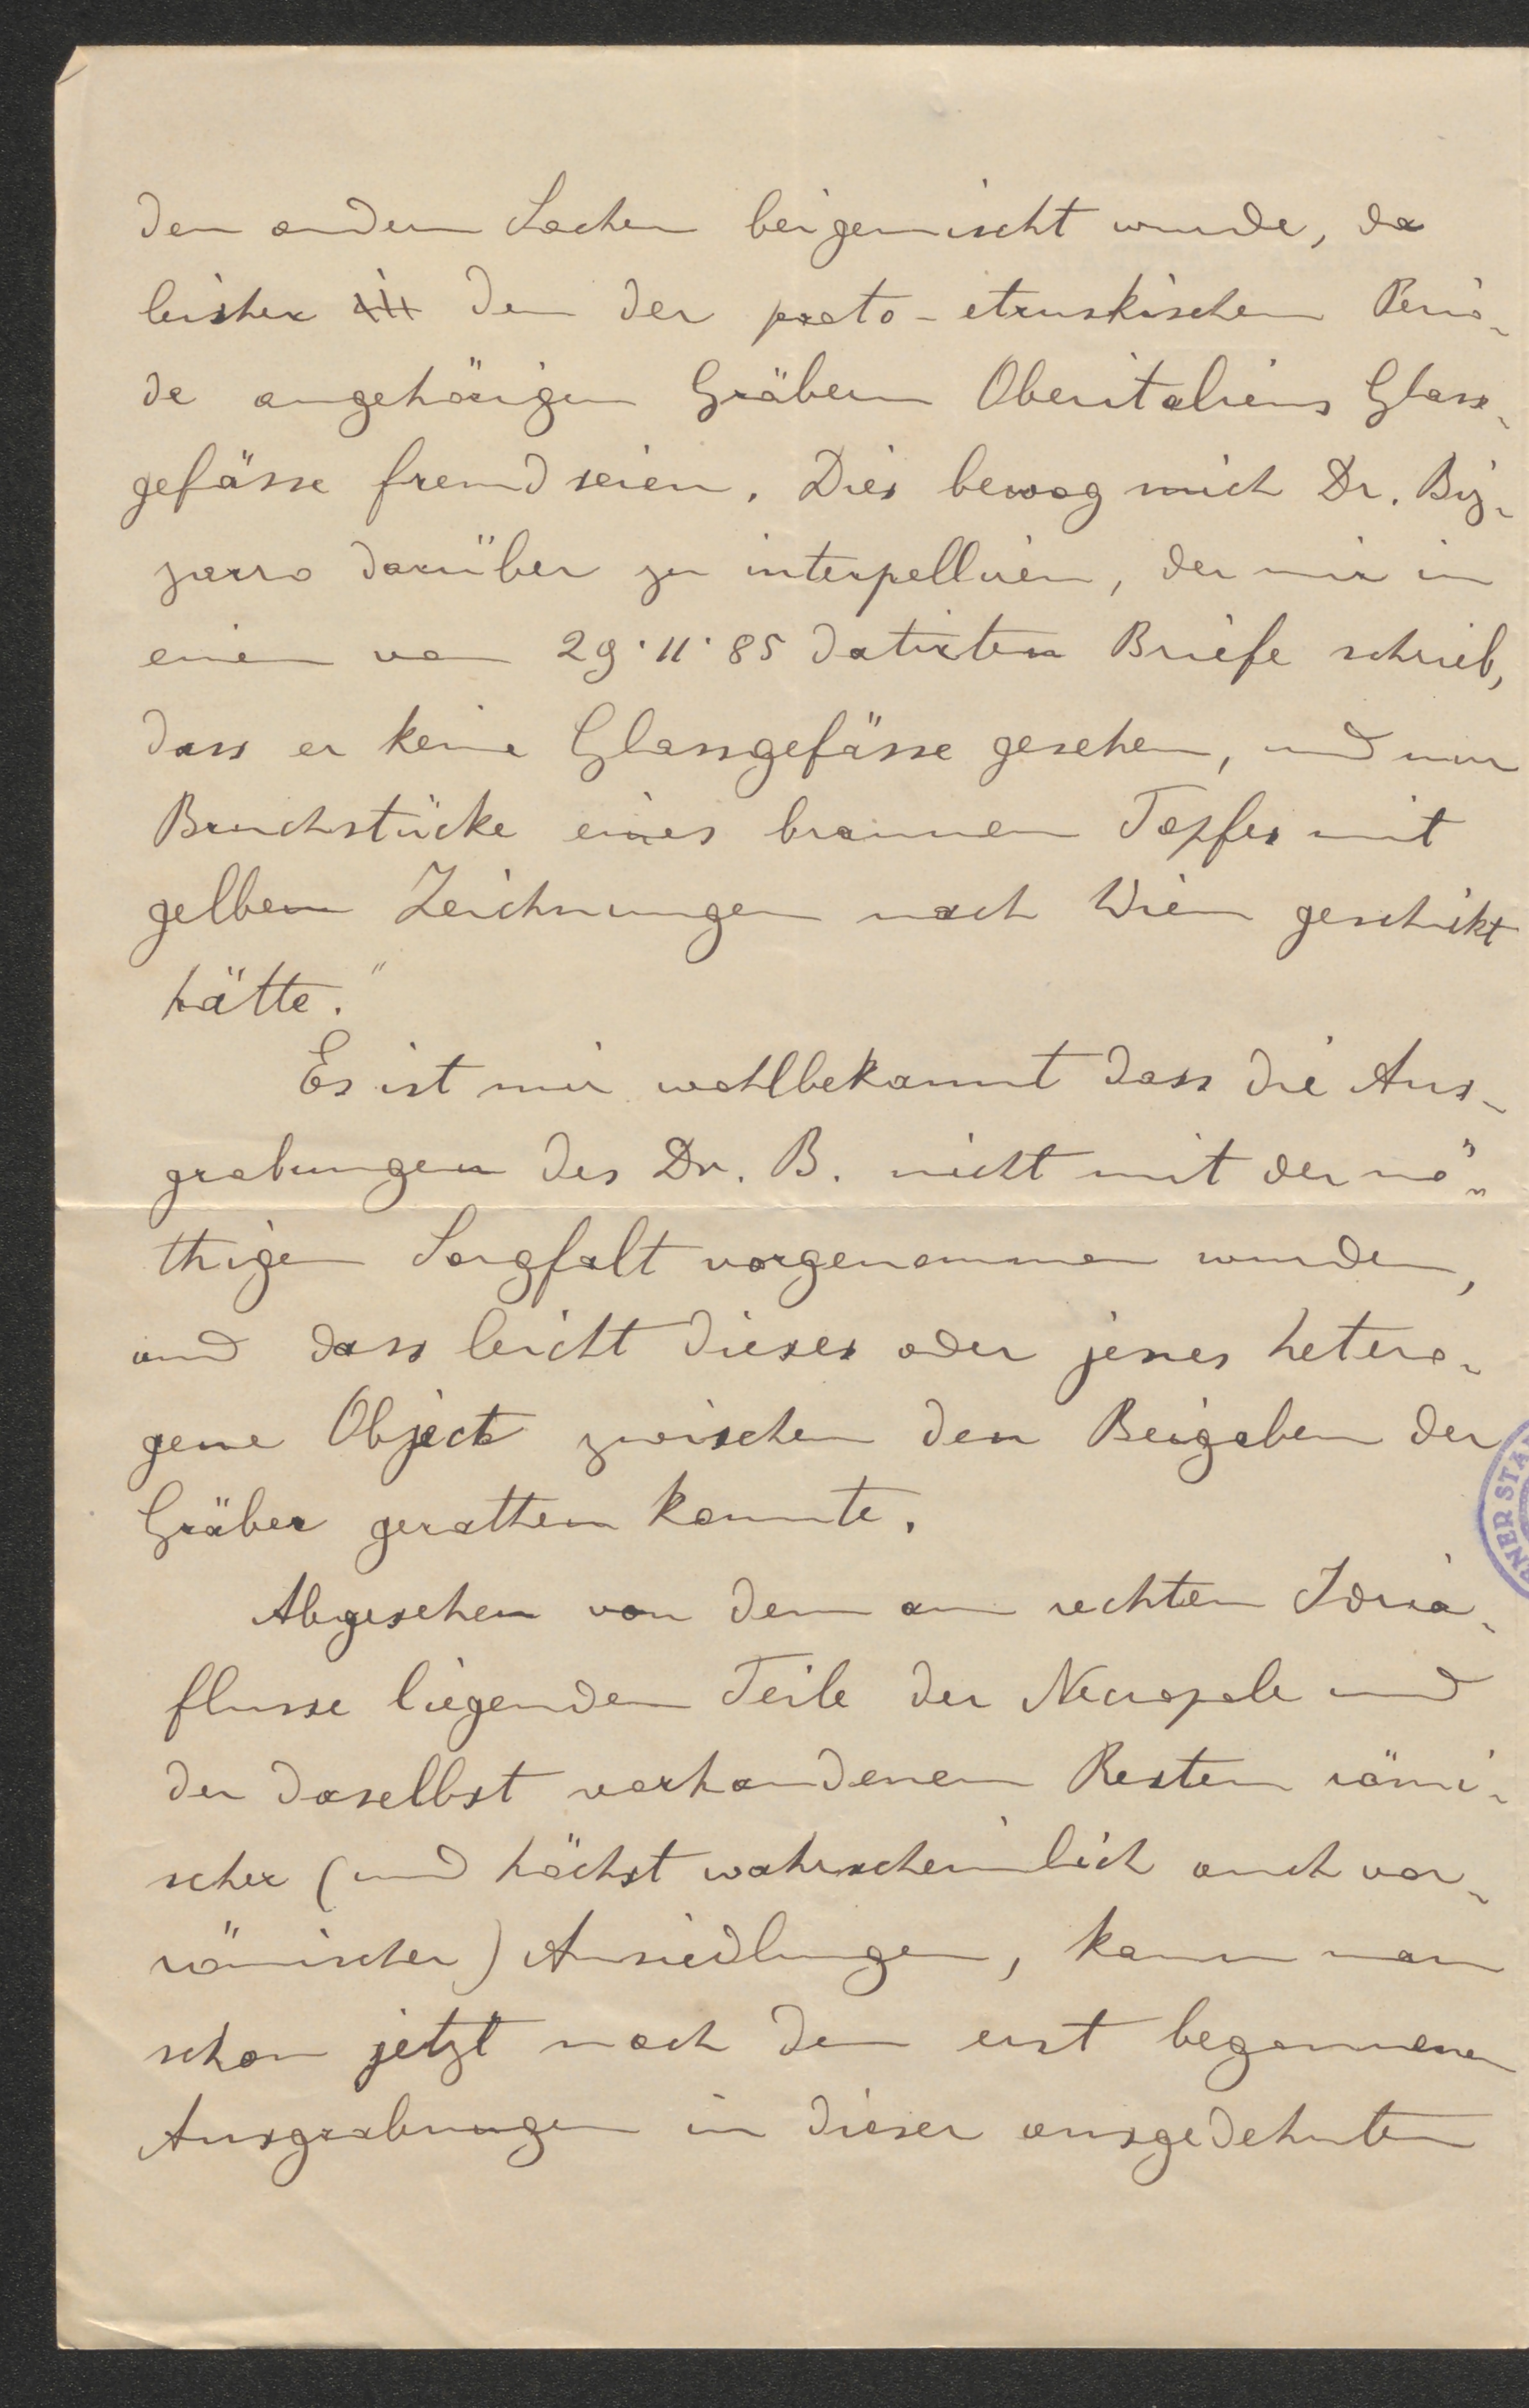 den andern Sachen beigemischt wurde, da
bisher in den der proto-etruskischen Perio-
de angehörigen Gräbern Oberitaliens Glass-
gefässe fremd seien. Dies bewog mich Dr. Biz-
zarro darüber zu interpelliren, der mir in
einem vom 29·11·85 datirten Briefe schrieb,
dass er keine Glassgefässe gesehen, und nur
Bruchstücke eines braunen Topfes mit
gelben Zeichnungen nach Wien geschikt
hätte."
Es ist mir wohlbekannt dass die Aus-
grabungen des Dr. B. nicht mit der nö-
thigen Sorgfalt vorgenommen wurden,
und dass leicht dieses oder jenes hetero-
gene Object zwischen den Beigaben der
Gräber gerathen konnte.
Abgesehen von dem am rechten Idria-
flusse liegenden Teile der Necropole und
der daselbst vorhandenen Resten römi-
scher (und höchst wahrscheinlich auch vor-
römischer) Ansiedlungen, kann man
schon jetzt nach den erst begonnenen
Ausgrabungen in dieser ausgedehnten